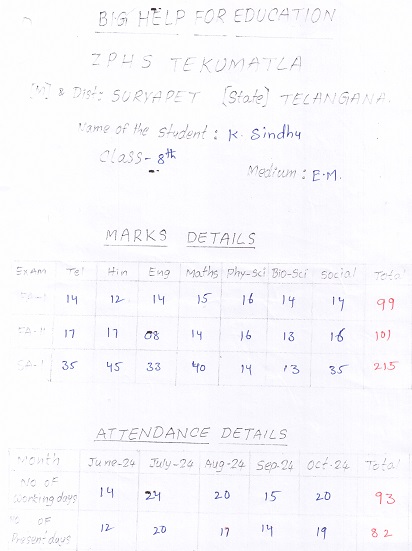 BIG HELP FOR EDUCATION
ZPHS TEKUMATLA
[M] & Dist: SURYAPET [State] TELANGANA.
Name of the Student : K. Sindhu
Class - 8th
Medium : E.M.
MARKS DETAILS
Exam Tel Hin Eng Maths Phy-Sci Bio-Sci Social Total
FA-I 14 12 14 15 16 14 14 99
FA-II 17 17 08 14 16 13 16 101
SA-I 35 45 33 40 14 13 35 215
ATTENDANCE DETAILS
Month June-24 July-24 Aug-24 Sep-24 Oct-24 Total
No of Working days 14 24 20 15 20 93
No of Present days 12 20 17 14 19 82